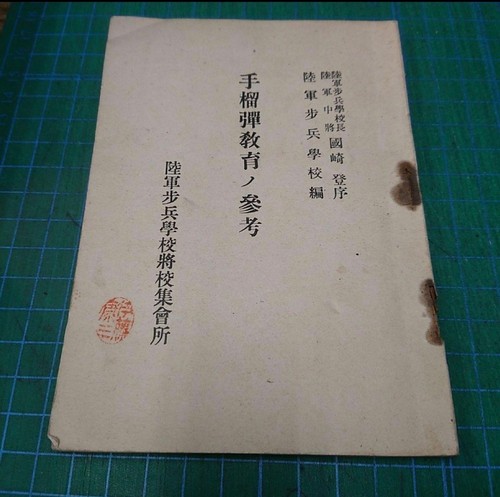 陸軍步兵學校長
陸軍中將
國崎登序
陸軍步兵學校編
手榴彈敎育ノ參考
陸軍步兵學校將校集會所